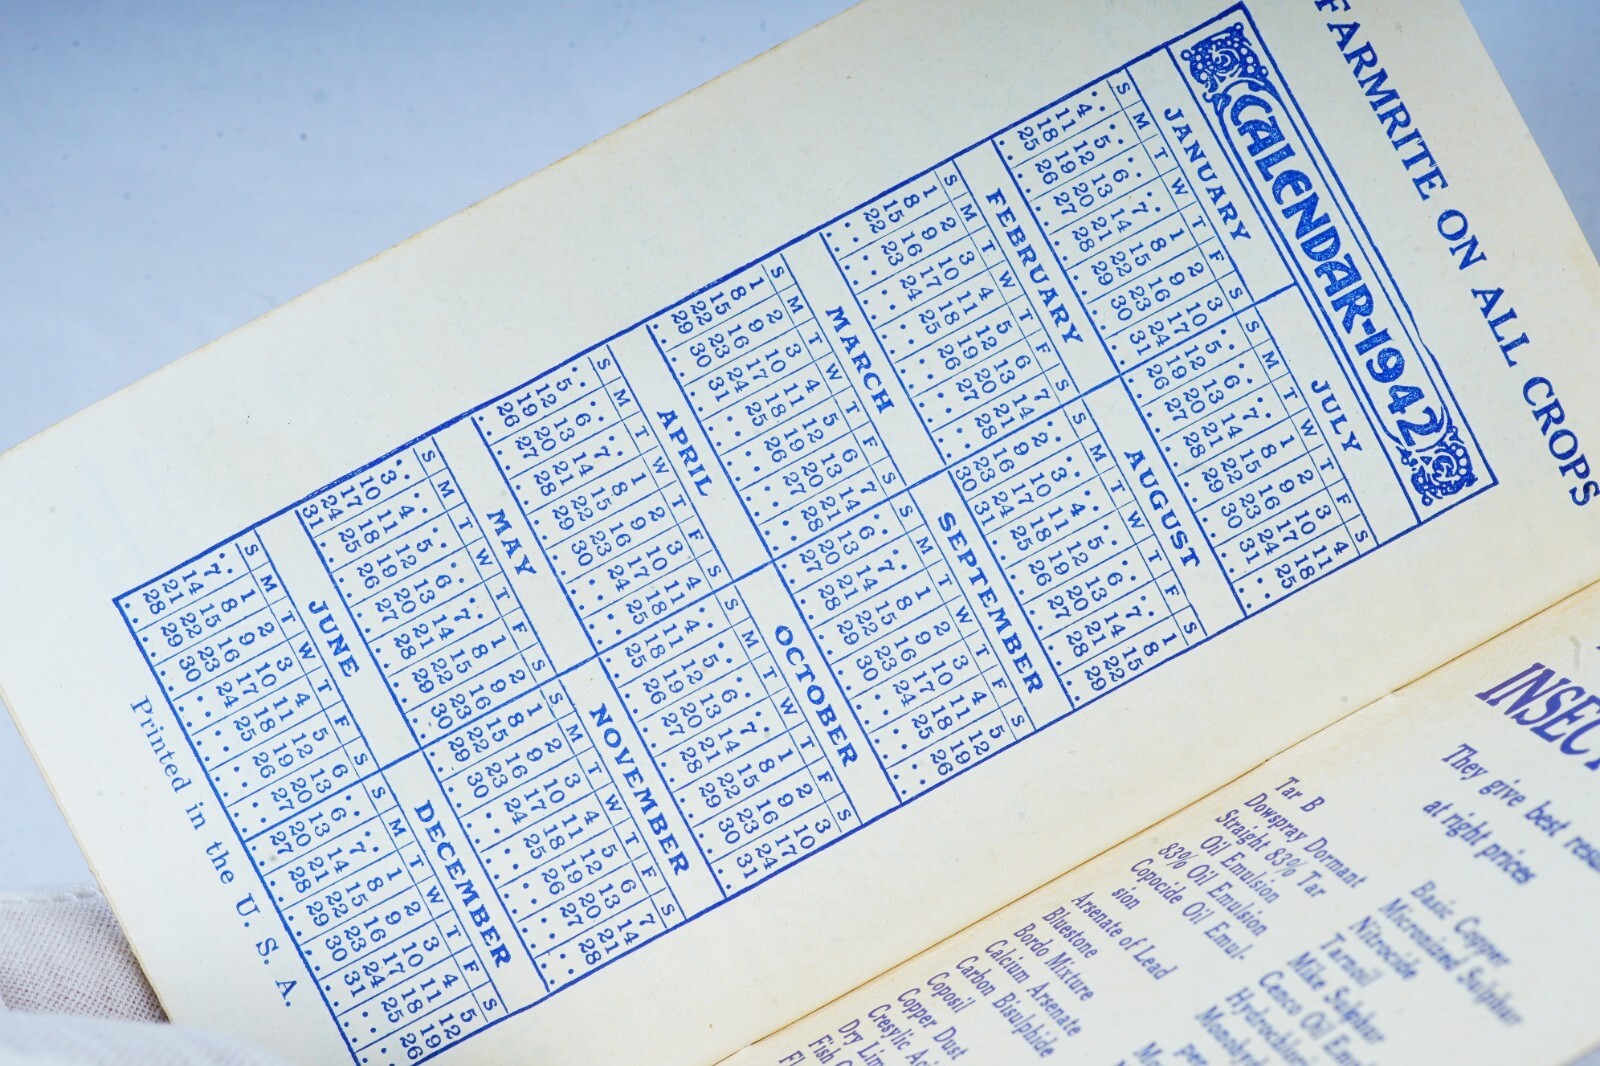 FARMRITE ON ALL CROPS
CALENDAR-1942
JANUARY
S M T W T F S
. . . . 1 2 3
4 5 6 7 8 9 10
11 12 13 14 15 16 17
18 19 20 21 22 23 24
25 26 27 28 29 30 31
FEBRUARY
S M T W T F S
1 2 3 4 5 6 7
8 9 10 11 12 13 14
15 16 17 18 19 20 21
22 23 24 25 26 27 28
MARCH
S M T W T F S
1 2 3 4 5 6 7
8 9 10 11 12 13 14
15 16 17 18 19 20 21
22 23 24 25 26 27 28
29 30 31 . . . .
APRIL
S M T W T F S
. . . 1 2 3 4
5 6 7 8 9 10 11
12 13 14 15 16 17 18
19 20 21 22 23 24 25
26 27 28 29 30 . .
MAY
S M T W T F S
. . . . . 1 2
3 4 5 6 7 8 9
10 11 12 13 14 15 16
17 18 19 20 21 22 23
24 25 26 27 28 29 30
31 . . . . . .
JUNE
S M T W T F S
. 1 2 3 4 5 6
7 8 9 10 11 12 13
14 15 16 17 18 19 20
21 22 23 24 25 26 27
28 29 30 . . . .
JULY
S M T W T F S
. . . 1 2 3 4
5 6 7 8 9 10 11
12 13 14 15 16 17 18
19 20 21 22 23 24 25
26 27 28 29 30 31 .
AUGUST
S M T W T F S
. . . . . . 1
2 3 4 5 6 7 8
9 10 11 12 13 14 15
16 17 18 19 20 21 22
23 24 25 26 27 28 29
30 31 . . . . .
SEPTEMBER
S M T W T F S
. . 1 2 3 4 5
6 7 8 9 10 11 12
13 14 15 16 17 18 19
20 21 22 23 24 25 26
27 28 29 30 . . .
OCTOBER
S M T W T F S
. . . . 1 2 3
4 5 6 7 8 9 10
11 12 13 14 15 16 17
18 19 20 21 22 23 24
25 26 27 28 29 30 31
NOVEMBER
S M T W T F S
1 2 3 4 5 6 7
8 9 10 11 12 13 14
15 16 17 18 19 20 21
22 23 24 25 26 27 28
29 30 . . . . .
DECEMBER
S M T W T F S
. . 1 2 3 4 5
6 7 8 9 10 11 12
13 14 15 16 17 18 19
20 21 22 23 24 25 26
27 28 29 30 31 . .
Printed in the U. S. A.
INSECT
They give best
at right prices
Tar B
Dowspray Dormant
Straight 83% Tar
Oil Emulsion
83% Oil Emulsion
Copocide Oil Emul-
sion
Arsenate of Lead
Bluestone
Bordo Mixture
Calcium Arsenate
Carbon Bisulphide
Coposil
Copper Dust
Cresylic
Dry
Fish
Basic Copper
Micronized Sulphur
Nitrocide
Tarmoil
Mike Sulphur
Cenco Oil